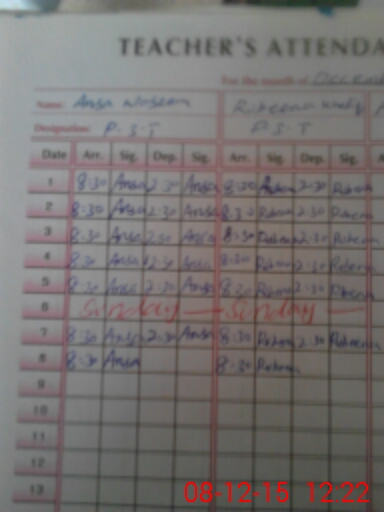 TEACHER'S ATTENDA
For the month of Decem
Name: Ansa Waseem Rubeena
Designation: P.S.T P.S.T
Date Arr. Sig. Dep. Sig. Arr. Sig. Dep. Sig.
1 8:30 Ansa 2:30 Ansa 8:30 Rubeena 2:30 Rubeena
2 8:30 Ansa 2:30 Ansa 8:30 Rubeena 2:30 Rubeena
3 8:30 Ansa 2:30 Ansa 8:30 Rubeena 2:30 Rubeena
4 8:30 Ansa 2:30 Ansa 8:30 Rubeena 2:30 Rubeena
5 8:30 Ansa 2:30 Ansa 8:30 Rubeena 2:30 Rubeena
6 Sunday Sunday
7 8:30 Ansa 2:30 Ansa 8:30 Rubeena 2:30 Rubeena
8 8:30 Ansa 8:30 Rubeena
9
10
11
12
13
08-12-15 12:22